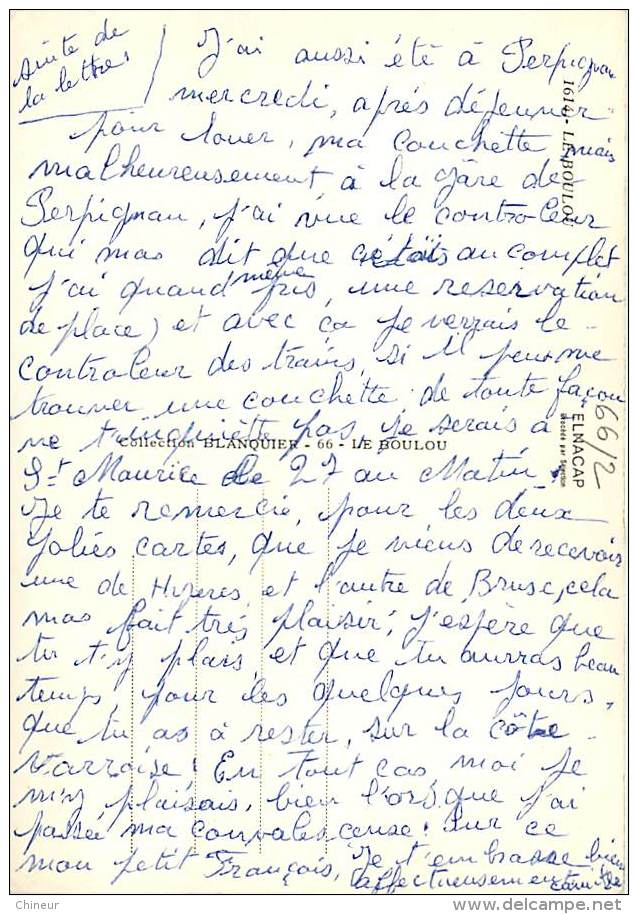 suite de
la lettres
J'ai aussi été à Perpignan
mercredi, aprés déjeuner
pour louer, ma couchette mais
malheureusement, à la gâre de
Perpignan, j'ai vue le controleur
qui mas dit que c'étais au complet
j'ai quand même pris, une réservation
de place, et avec ça je verrais le
controleur des trains, si il peut me
trouver une couchette de toute façon
ne t'inquiète pas, je serais à
St Maurice le 27 au Matin.
Je te remercie, pour les deux
jolies cartes, que je viens de recevoir
une de Hyeres, et l'autre de Brusc, cela
mas fait trés plaisir, j'espère que
tu t'y plais, et que tu aurras beau
temps, pour les quelques jours,
que tu as à rester, sur la côte
Varroise! En tout cas, moi je
m'y plaisais, bien l'orsque j'ai
passée ma convalescense! Sur ce
mon petit François, je t'embrasse bien
affectueusement
1614 - LE BOULOU
Collection BLANQUIER - 66 - LE BOULOU
ELNACAP
procédé par Sélection
66/2
www.delcampe.net